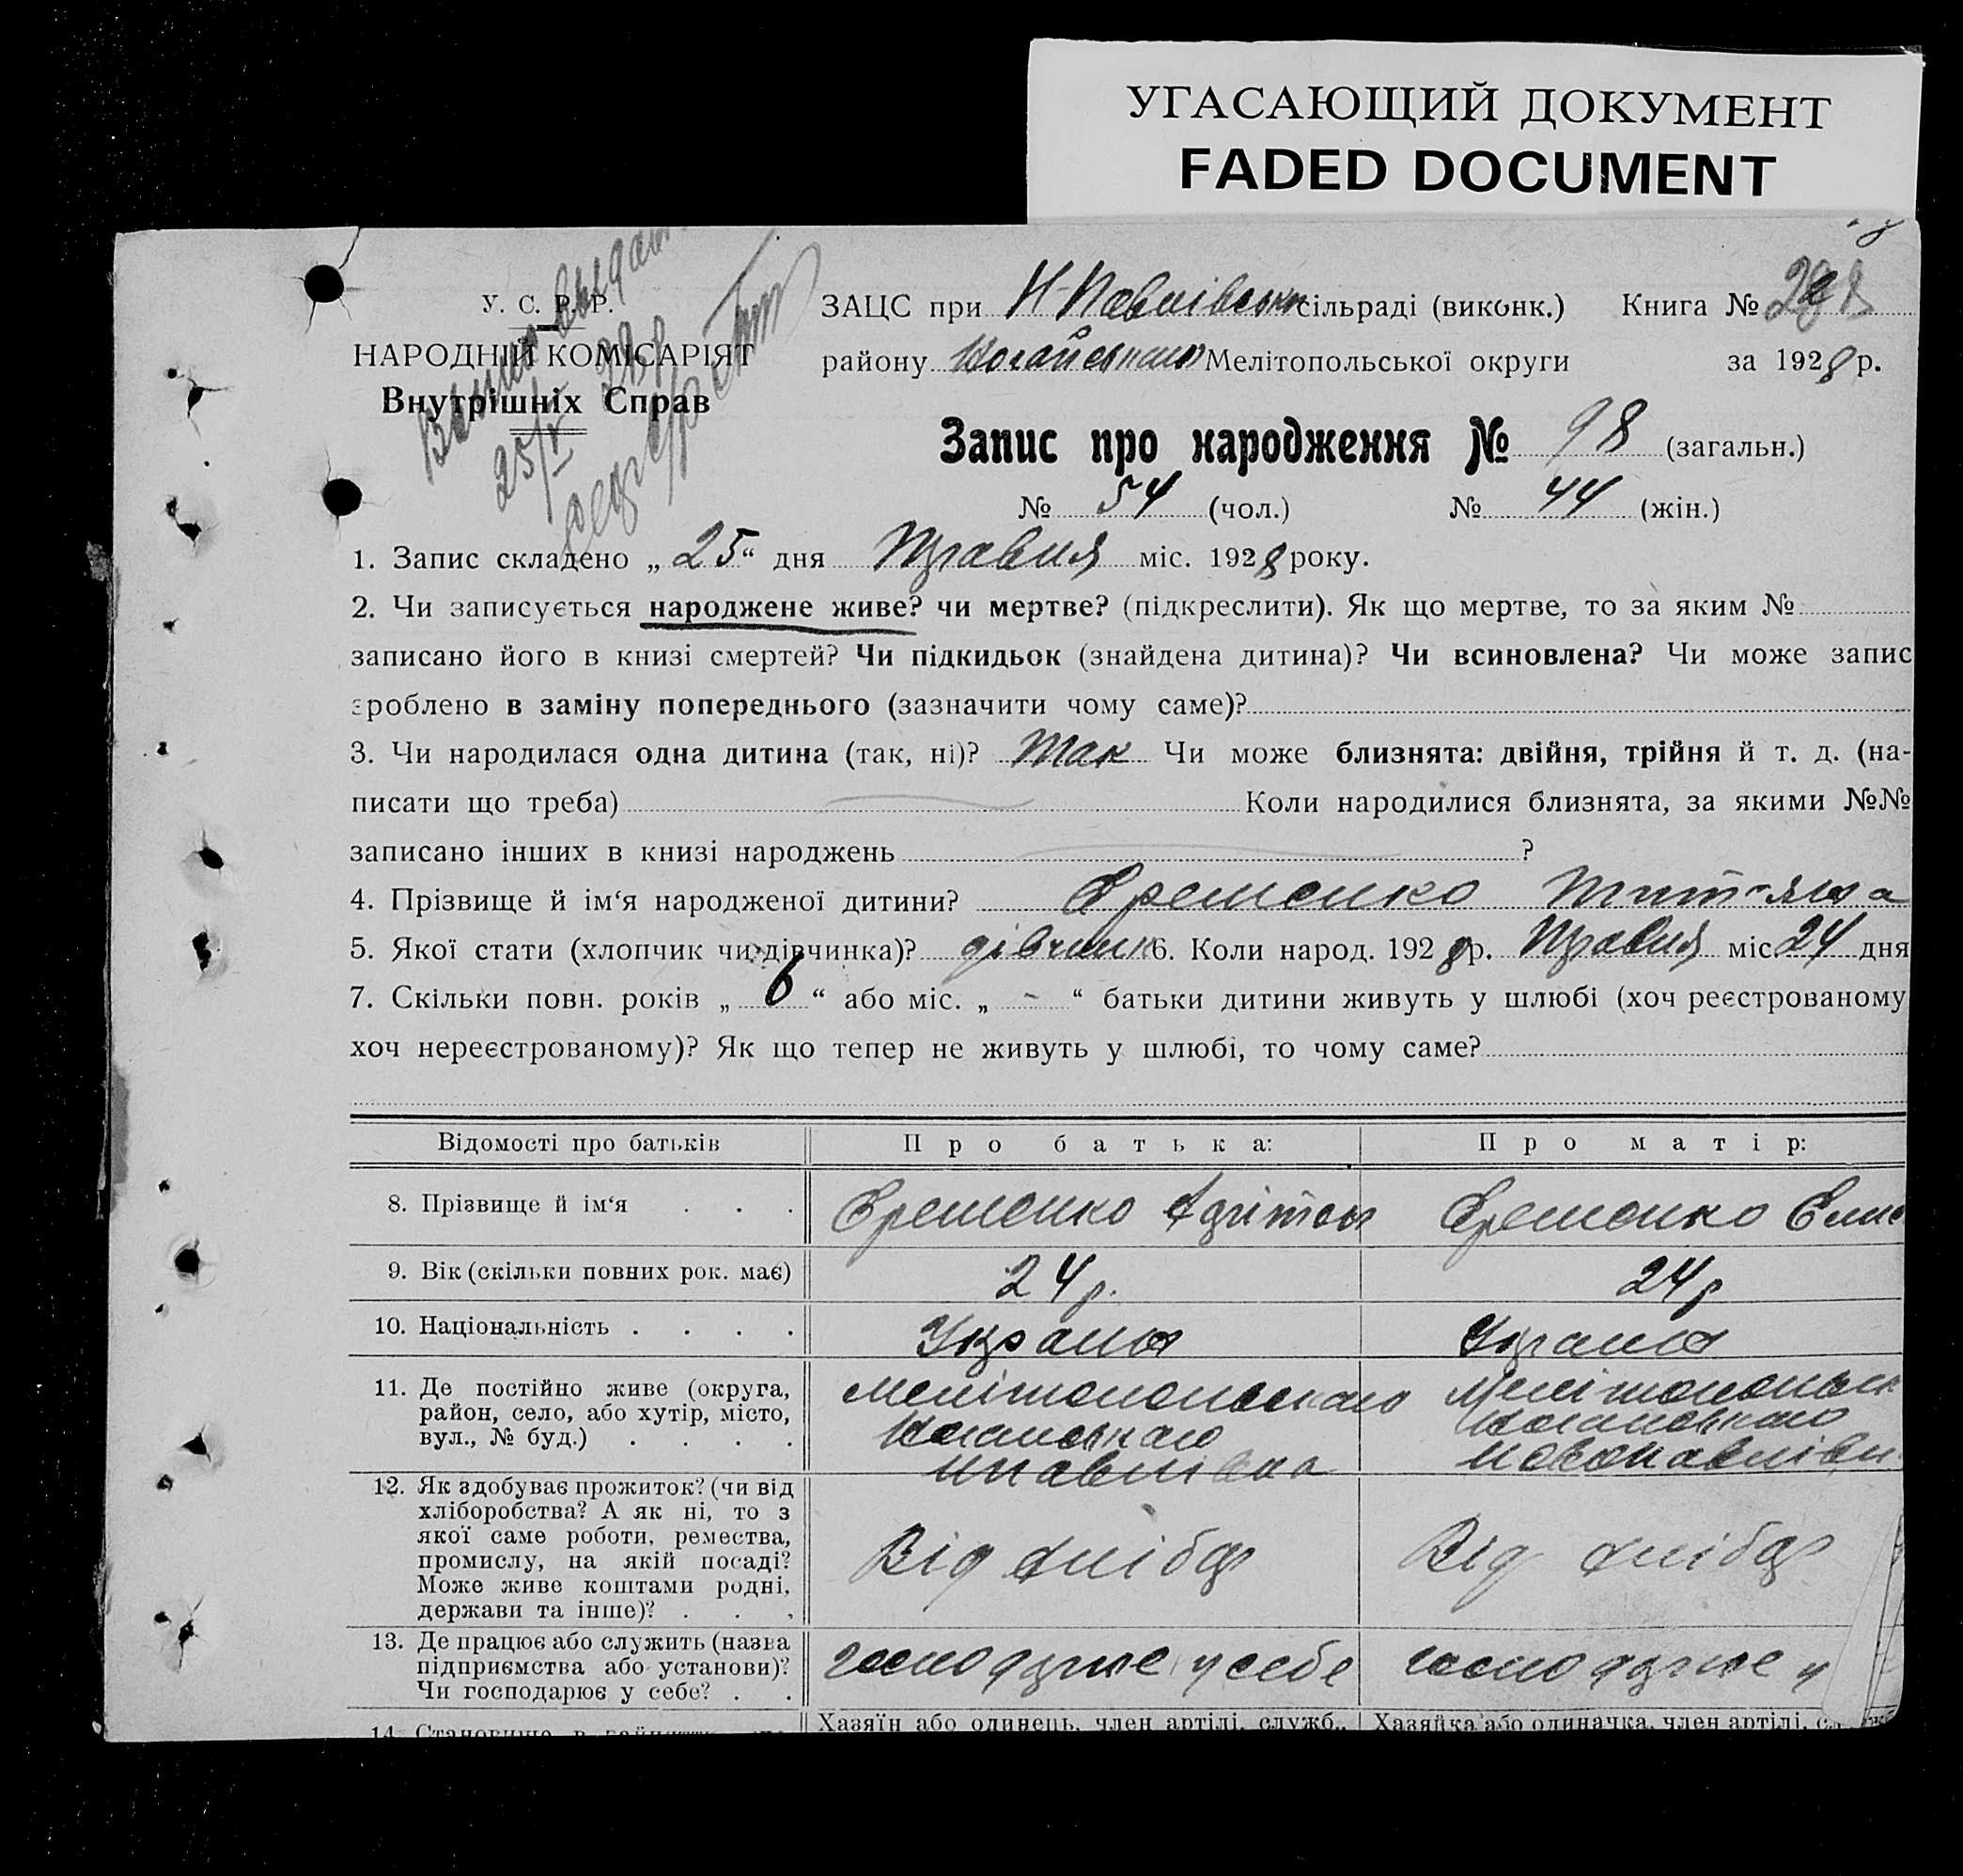 УГАСАЮЩИЙ ДОКУМЕНТ
FADED DOCUMENT
У. С. Р. Р.
НАРОДНІЙ КОМІСАРІЯТ
Внутрішніх Справ
25/V 28 р
ЗАЦС при Н-Павлівськ сільраді (виконк.) Книга №
району Ногайського Мелітопольської округи за 1928 р.
Запис про народження № 98 (загальн.)
№ 54 (чол.) № 44 (жін.)
1. Запис складено „ 25 “ дня Травня міс. 1928 року.
2. Чи записується народжене живе? чи мертве? (підкреслити). Як що мертве, то за яким №
записано його в книзі смертей? Чи підкидьок (знайдена дитина)? Чи всиновлена? Чи може запис
зроблено в заміну попереднього (зазначити чому саме)?
3. Чи народилася одна дитина (так, ні)? Так Чи може близнята: двійня, трійня й т. д. (на-
писати що треба) Коли народилися близнята, за якими №№
записано інших в книзі народжень ?
4. Прізвище й ім‘я народженої дитини? Єременко Тит‘яна
5. Якої стати (хлопчик чи дівчинка)? дівчинк 6. Коли народ. 1928 р. Травня міс. 24 дня
7. Скільки повн. років „ 6 “ або міс. „ - “ батьки дитини живуть у шлюбі (хоч реєстрованому
хоч нереєстрованому)? Як що тепер не живуть у шлюбі, то чому саме?
Відомості про батьків Про батька: Про матір:
8. Прізвище й ім‘я . . . Єременко Єременко
9. Вік (скільки повних рок. має) 24 р. 24 р
10. Національність . . . . Україна Україна
11. Де постійно живе (округа,
район, село, або хутір, місто,
вул., № буд.) . . . .
Мелітопольського
Ногайського
Нпавлівка
Мелітопольськ
Ногайського
Новопавлівк
12. Як здобуває прожиток? (чи від
хліборобства? А як ні, то з
якої саме роботи, ремества,
промислу, на якій посаді?
Може живе коштами родні,
держави та інше)? . . .
Від хлібор Від хлібор
13. Де працює або служить (назва
підприємства або установи)?
Чи господарює у себе? . .
господарює у себе господарює у
14. Становище в
Хазяїн або одинець, член артілі, служб., Хазяйка або одиначка, член артілі,